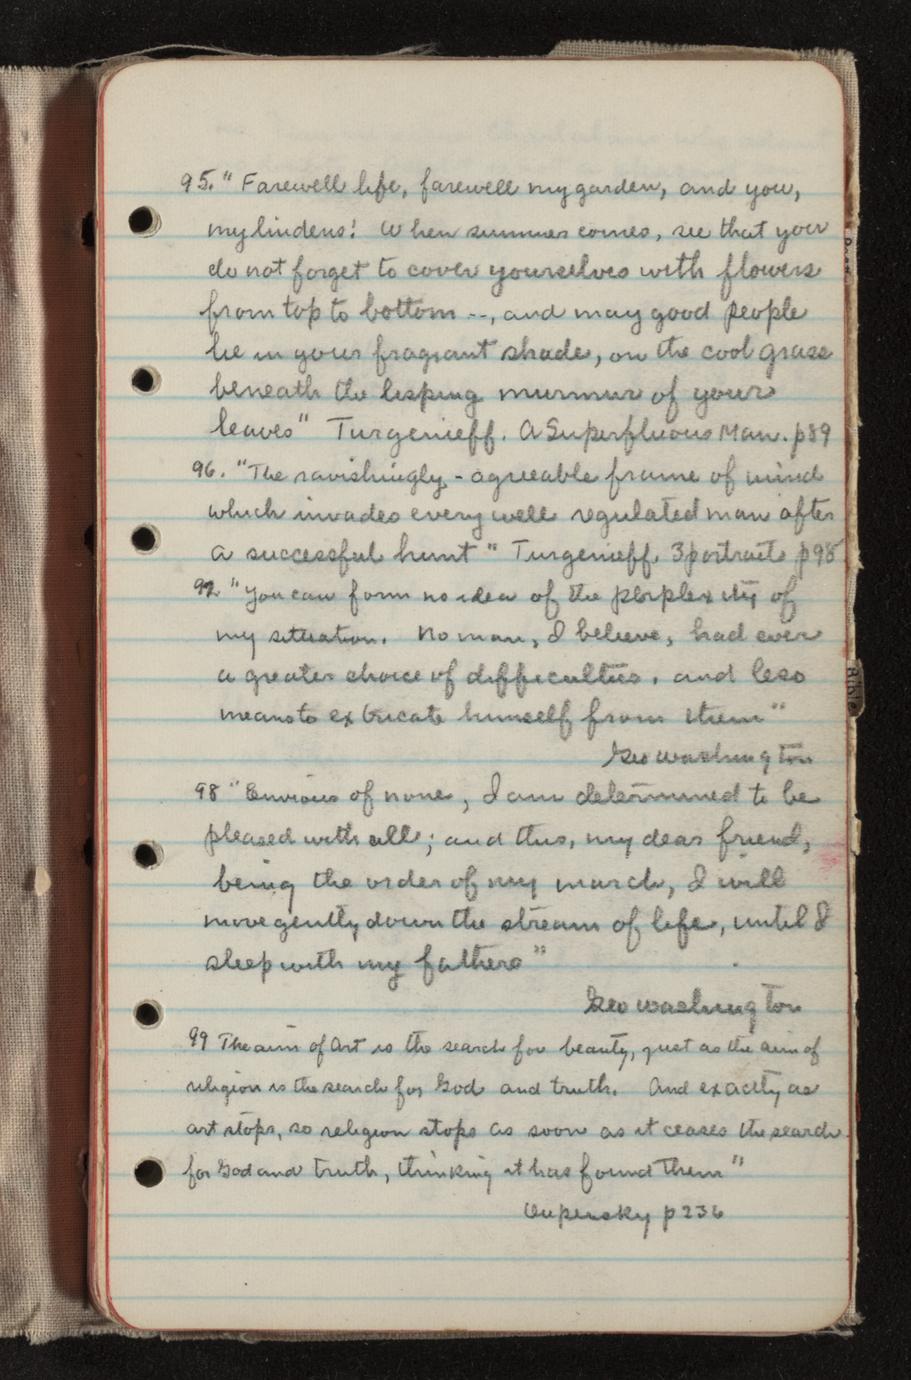 95. " Farewell life, farewell my garden, and you,
my lindens! When summer comes, see that you
do not forget to cover yourselves with flowers
from top to bottom --, and may good people
lie in your fragrant shade, on the cool grass
beneath the lisping murmur of your
leaves" Turgenieff. A Superfluous Man. p89
96. "The ravishingly-agreeable frame of mind
which invades every well regulated man after
a successful hunt" Turgenieff. 3 portraits p98
97 "You can form no idea of the perplexity of
my situation. No man, I believe, had ever
a greater choice of difficulties, and less
means to extricate himself from them"
Geo Washington
98 "Envious of none, I am determined to be
pleased with all; and this, my dear friend,
being the order of my march, I will
move gently down the stream of life, until I
sleep with my fathers"
Geo Washington
99 The aim of Art is the search for beauty, just as the aim of
religion is the search for God and truth. And exactly as
art stops, so religion stops as soon as it ceases the search
for God and truth, thinking it has found them"
Oupensky p236
Bible